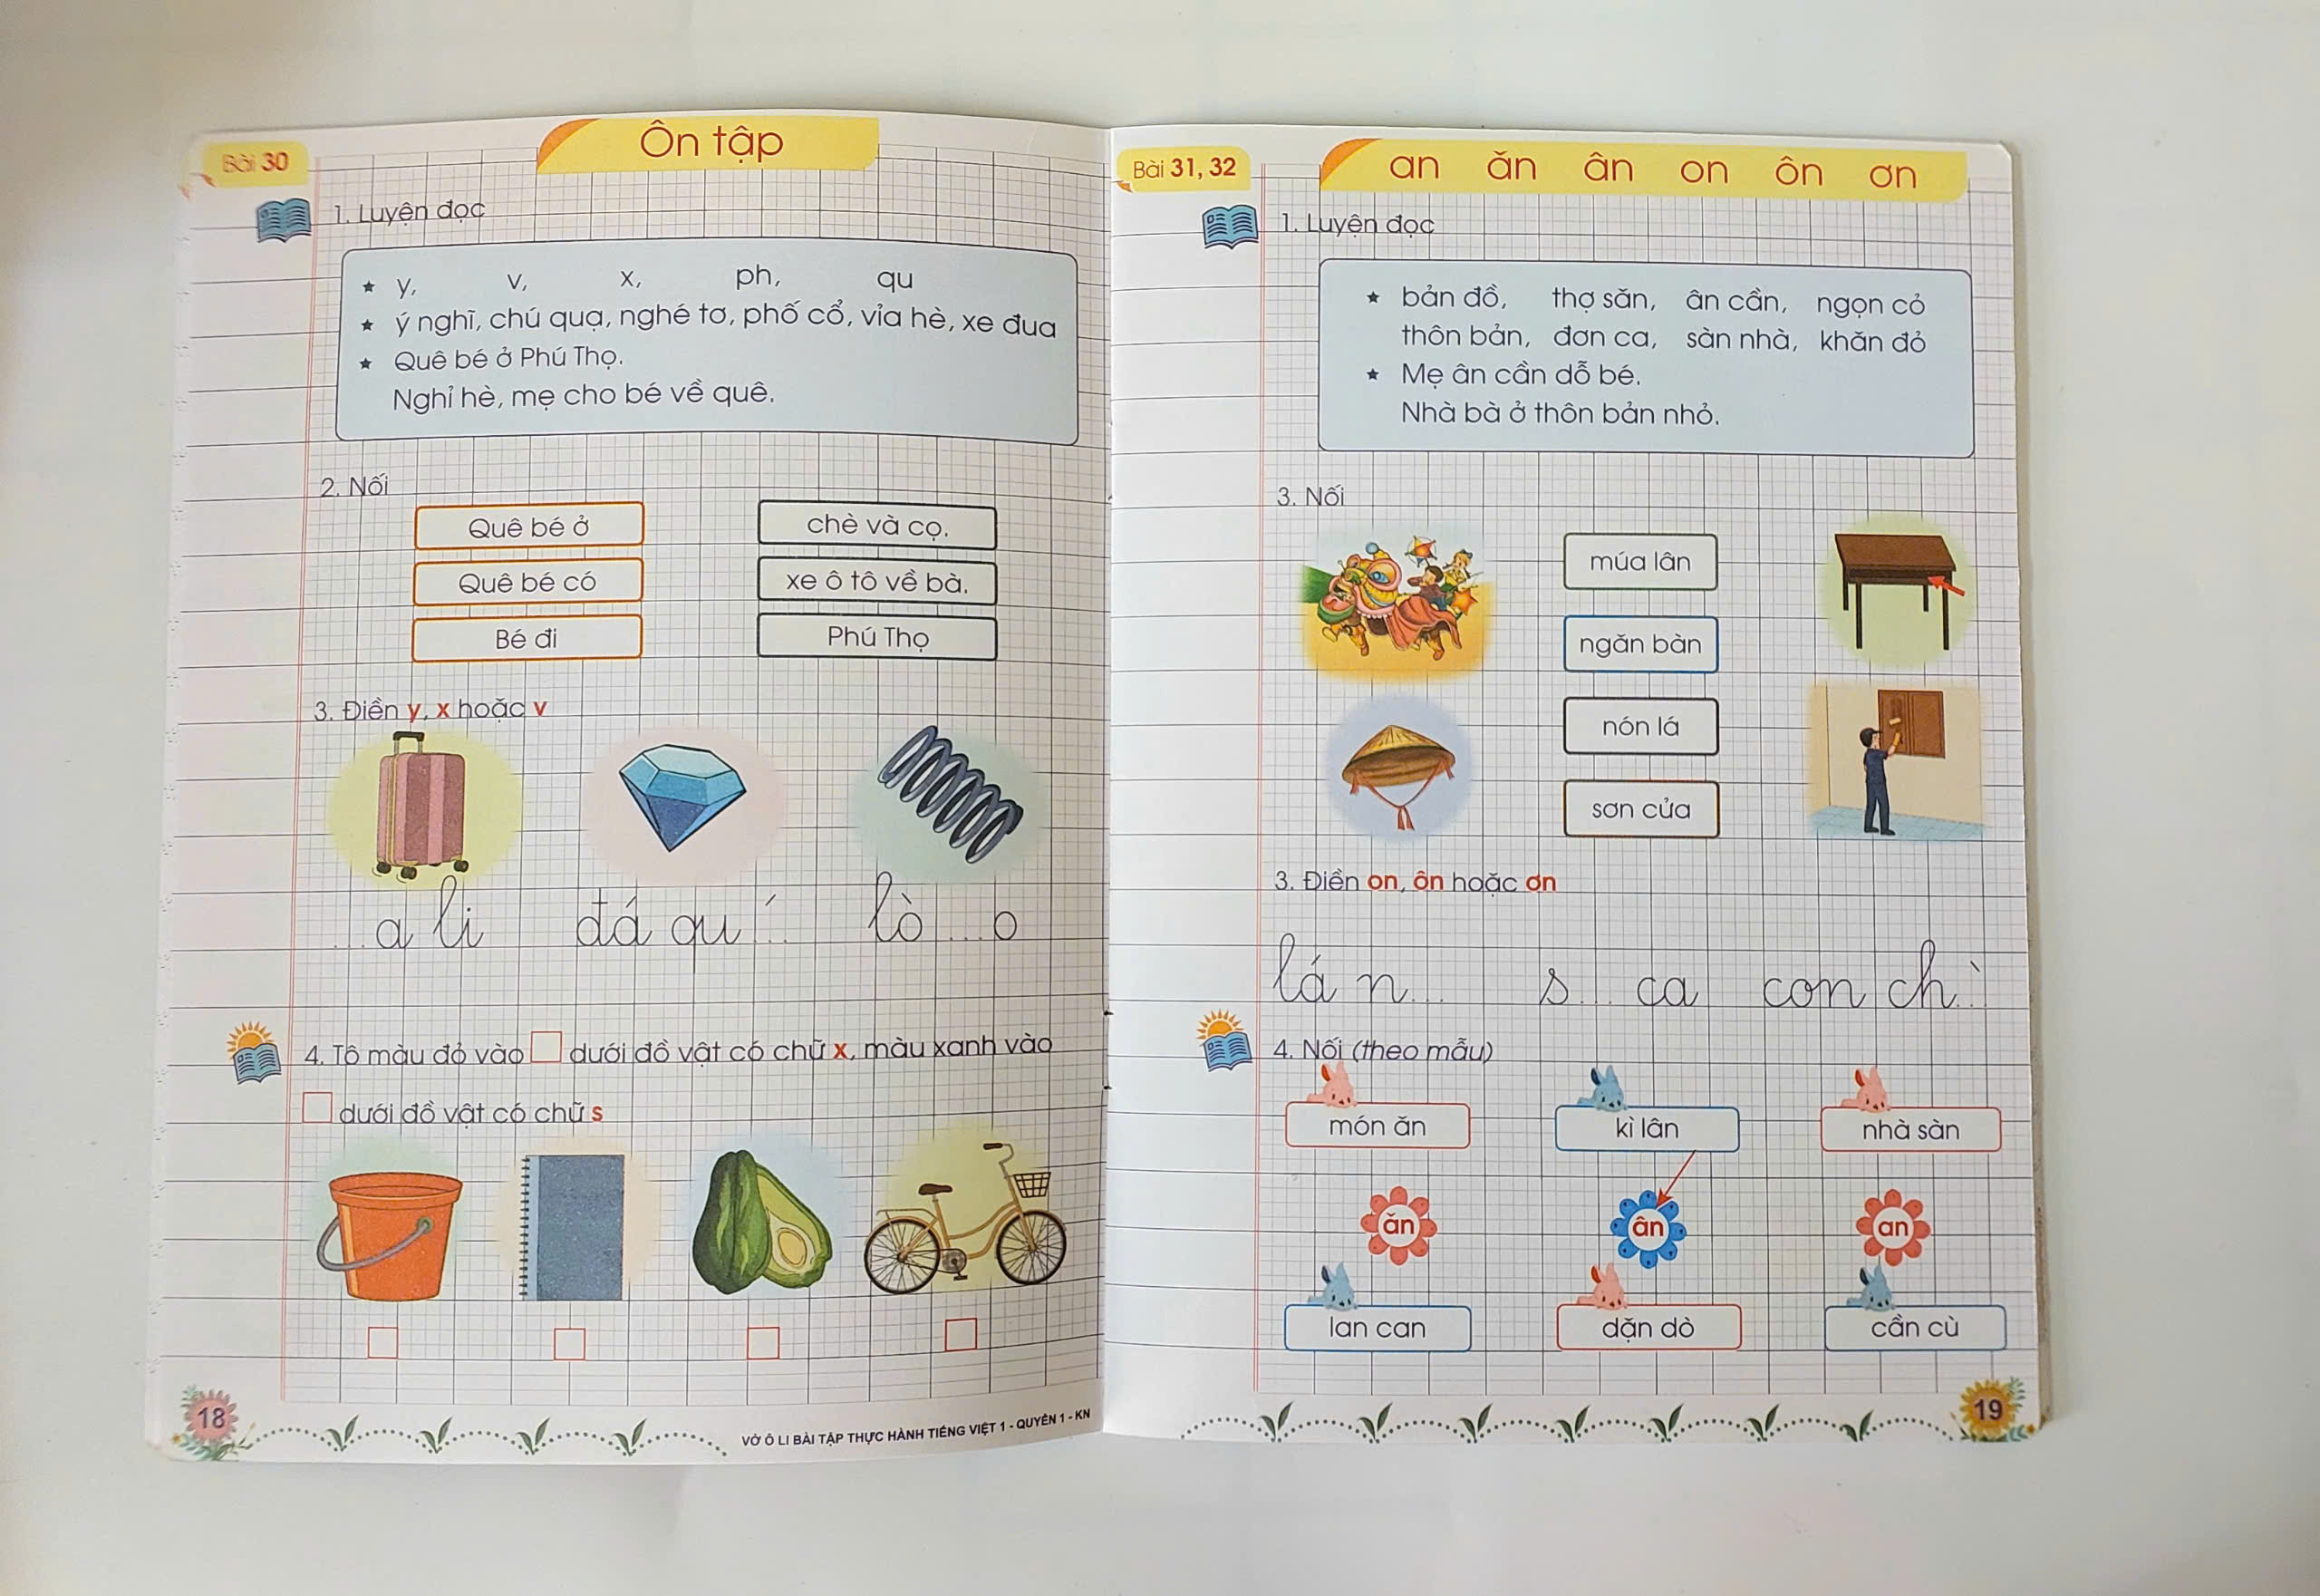 Bài 30
Ôn tập
1. Luyện đọc
★ y, v, x, ph, qu
★ ý nghĩ, chú quạ, nghé tơ, phố cổ, vỉa hè, xe đua
★ Quê bé ở Phú Thọ.
Nghỉ hè, mẹ cho bé về quê.
2. Nối
Quê bé ở chè và cọ.
Quê bé có xe ô tô về bà.
Bé đi Phú Thọ
3. Điền y, x hoặc v
...a li đá qu... lò ...o
4. Tô màu đỏ vào □ dưới đồ vật có chữ x, màu xanh vào
□ dưới đồ vật có chữ s
18
VỞ Ô LI BÀI TẬP THỰC HÀNH TIẾNG VIỆT 1 - QUYỂN 1 - KN
Bài 31, 32
an ăn ân on ôn ơn
1. Luyện đọc
★ bản đồ, thợ săn, ân cần, ngọn cỏ
thôn bản, đơn ca, sàn nhà, khăn đỏ
★ Mẹ ân cần dỗ bé.
Nhà bà ở thôn bản nhỏ.
3. Nối
múa lân
ngăn bàn
nón lá
sơn cửa
3. Điền on, ôn hoặc ơn
lá n... s... ca con ch...
4. Nối (theo mẫu)
món ăn kì lân nhà sàn
ăn ân an
lan can dặn dò cần cù
19